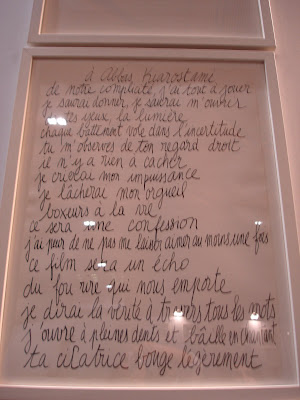 à Abbas Kiarostami
de notre complicité, j'ai tout à jouer
je saurai donner, je saurai m'ouvrir
tes yeux, la lumière
chaque battement vole dans l'incertitude
tu m'observes de ton regard droit
il n'y a rien à cacher
je crierai mon impuissance
je lâcherai mon orgueil
boxeurs à la vie
ce sera une confession
j'ai peur de ne pas me laisser aimer au moins une fois
ce film sera un écho
du fou rire qui nous emporte
je dirai la vérité à travers tous les mots
j'ouvre à pleines dents et bâille en chantant
ta cicatrice bouge légèrement